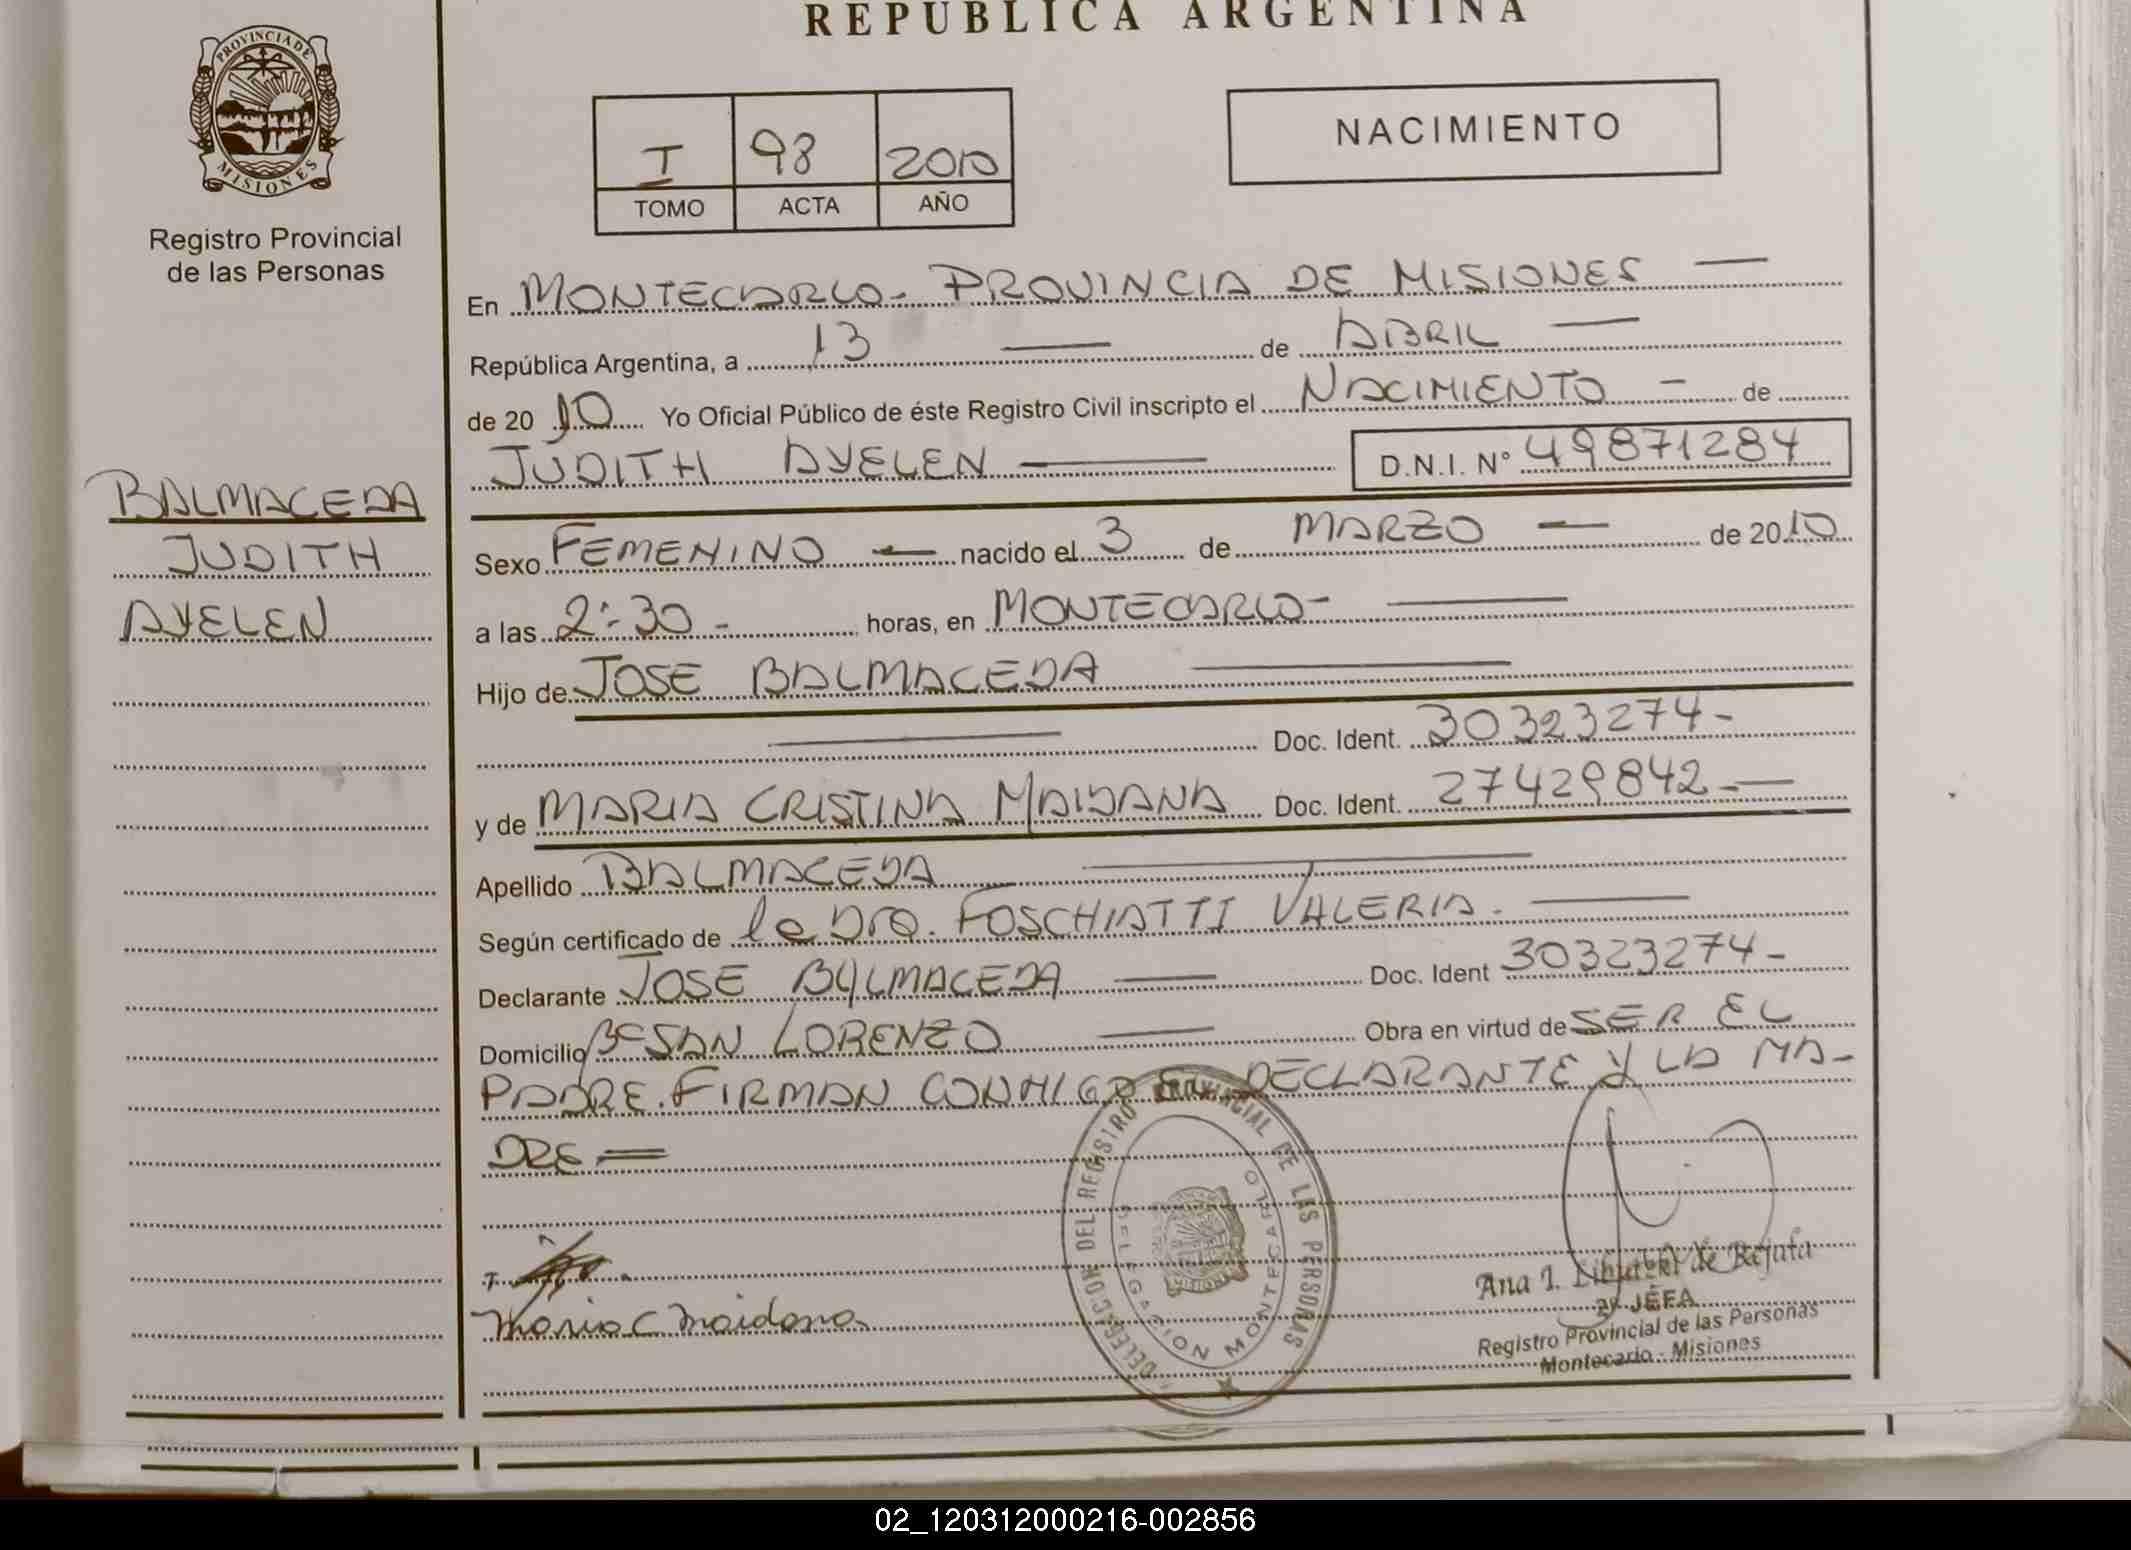 REPUBLICA ARGENTINA
PROVINCIA DE
MISIONES
Registro Provincial
de las Personas
I 98 2010
TOMO ACTA AÑO
NACIMIENTO
En MONTECARLO - PROVINCIA DE MISIONES —
República Argentina, a 13 — de ABRIL —
de 2010 Yo Oficial Público de éste Registro Civil inscripto el NACIMIENTO - de
JUDITH AYELEN — D.N.I. N° 49871284
BALMACEDA
JUDITH
AYELEN
Sexo FEMENINO — nacido el 3 de MARZO — de 2010
a las 2:30 - horas, en MONTECARLO - —
Hijo de JOSE BALMACEDA —
— Doc. Ident. 30323274 -
y de MARIA CRISTINA MAIDANA Doc. Ident. 27429842 - —
Apellido BALMACEDA —
Según certificado de la Dra. FOSCHIATTI VALERIA. —
Declarante JOSE BALMACEDA — Doc. Ident 30323274 -
Domicilio Bº SAN LORENZO — Obra en virtud de SER EL
PADRE. FIRMAN CONMIGO EL DECLARANTE Y LA MA-
DRE =
Maria C Maidana
DELEGACION DEL REGISTRO PROVINCIAL DE LAS PERSONAS
DELEGACION MONTECARLO
MISIONES
Ana I. de
JEFA
Registro Provincial de las Personas
Montecarlo - Misiones
02_120312000216-002856